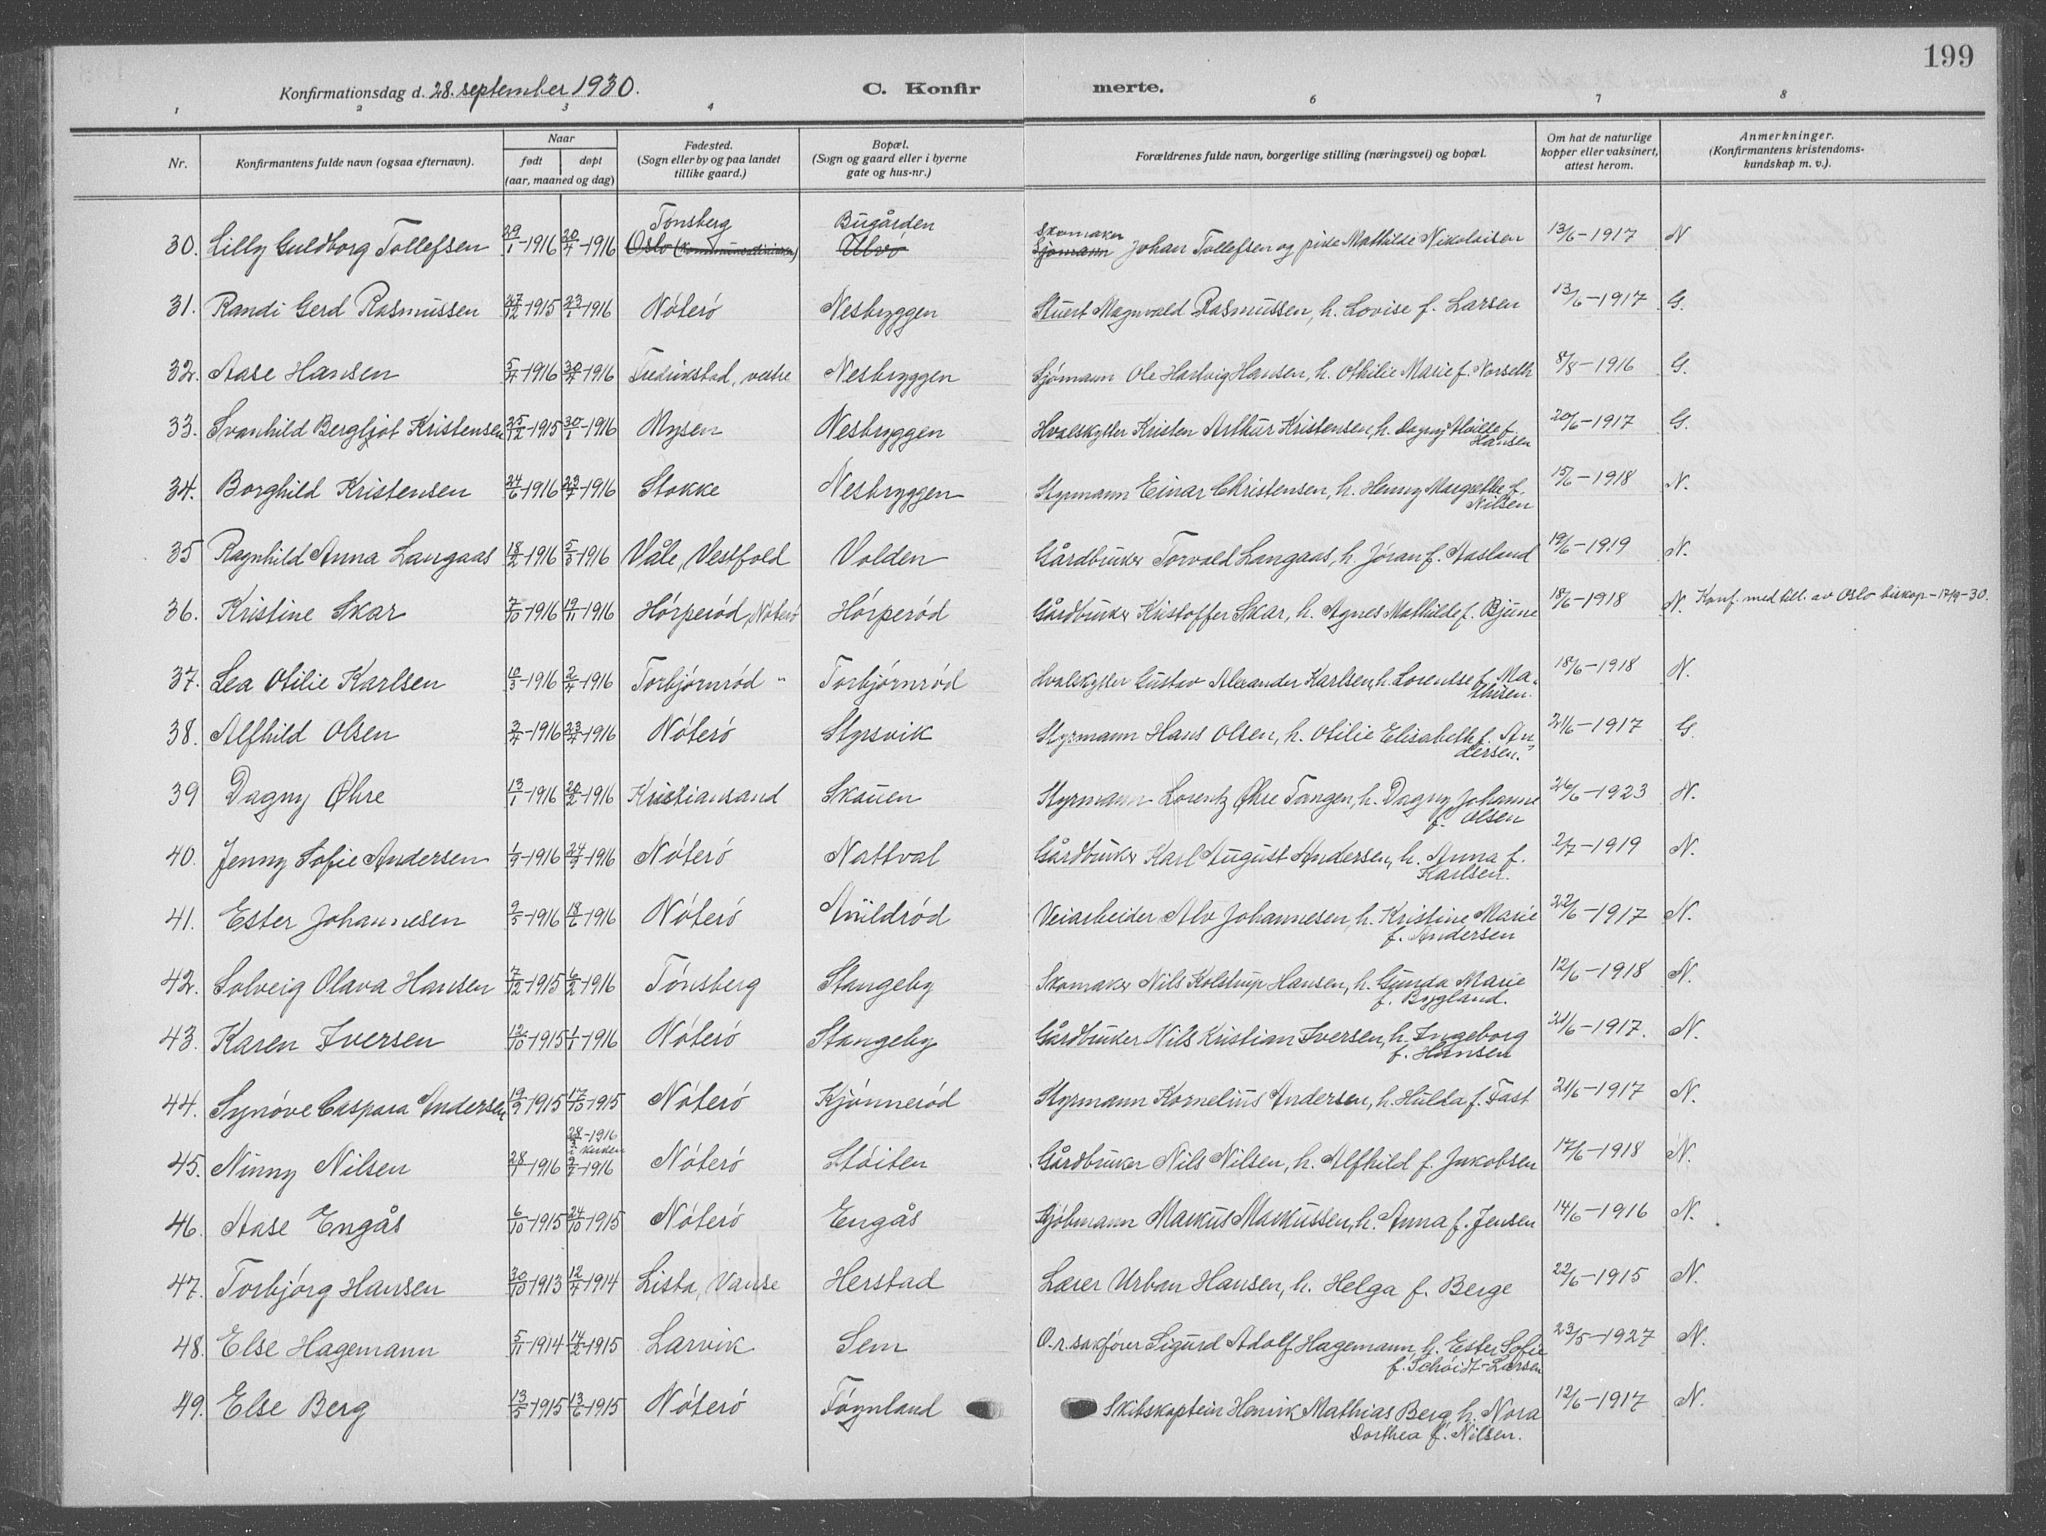 199
Konfirmationsdag d. 28. september 1930.
C. Konfirmerte.
1 2 3 4 6 7 8
Nr. Konfirmantens fulde navn (ogsaa efternavn). Naar født døpt (aar, maaned og dag) Fødested. (Sogn eller by og paa landet tillike gaard.) Bopæl. (Sogn og gaard eller i byerne gate og hus-nr.) Forældrenes fulde navn, borgerlige stilling (næringsvei) og bopæl. Om hat de naturlige kopper eller vaksinert, attest herom. Anmerkninger. (Konfirmantens kristendomskundskap m. v.).
Tønsberg Bugården Skomaker
30. Lilly Guldborg Tollefsen 29/1-1916 30/4-1916 Oslo Ulvø Sjømann Johan Tollefsen og pike Mathilde Nikolaisen 13/6-1917 N
31. Randi Gerd Rasmussen 27/12-1915 23/1-1916 Nøterø Nesbryggen Stuert Magnvald Rasmussen, h. Lovise f. Larsen 13/6-1917 G.
32. Aase Hansen 5/4-1916 30/4-1916 Fredrikstad, vestre Nesbryggen Sjømann Ole Hartvig Hansen, h. Othilie Marie f. Norseth 8/8-1916 G.
33. Svanhild Bergljot Kristensen 25/12-1915 30/1-1916 Mysen Nesbryggen Hvalskytter Kristen Arthur Kristensen, h. Dagny f. Hansen 20/6-1917 G.
34. Borghild Kristensen 24/6-1916 23/7-1916 Stokke Nesbryggen Styrmann Einar Christensen, h. Henny Margrethe f. Nilsen 15/6-1918 N.
35 Ragnhild Anna Langaas 18/2-1916 5/3-1916 Våle, Vestfold Volden Gårdbruker Torvald Langaas, h. Jøran f. Aasland 19/6-1919 N.
36. Kristine Skar 7/10-1916 19/11-1916 Hørperød, Nøterø Hørperød Gårdbruker Kristoffer Skar, h. Agnes Mathilde f. Bjune 18/6-1918 N. Konf. med till. av Oslo biskop-17/9-30.
37. Lea Otilie Karlsen 16/3-1916 2/4-1916 Torbjørnrød " Torbjørnrød Hvalskytter Gustav Alexander Karlsen, h. Lorentse f. Mathisen. 18/6-1918 N.
38. Alfhild Olsen 3/4-1916 23/4-1916 Nøterø Styrsvik Styrmann Hans Olsen, h. Otilie Elisabeth f. Andersen. 21/6-1917 G.
39 Dagny Øhre 13/1-1916 20/2-1916 Kristiansand Skauen Styrmann Lorentz Øhre Tangen, h. Dagny Johanne f. Olsen 26/6-1923 N.
40. Jenny Sofie Andersen 1/9-1916 24/9-1916 Nøterø Nattval Gårdbruker Karl August Andersen, h. Anna f. Karlsen. 2/7-1919 N.
41. Ester Johannesen 9/5-1916 18/6-1916 Nøterø Aüldrød Veiarbeider Alv Johannesen, h. Kristine Marie f. Andersen 22/6-1917 N.
42. Solveig Olava Hansen 7/12-1915 6/2-1916 Tønsberg Stangeby Skomaker Nils Kolstrup Hansen, h. Gunda Marie f. Bygland. 12/6-1918 N.
43. Karen Iversen 12/10-1915 1/1-1916 Nøterø Stangeby Gårdbruker Nils Kristian Iversen, h. Ingeborg f. Hansen 21/6-1917. N.
44. Synøve Caspara Andersen 19/9-1915 17/10-1915 Nøterø Kjønnerød Styrmann Kornelius Andersen, h. Hulda f. Fast 21/6-1917 N.
28/3-1916 i kirken
45. Ninny Nilsen 28/1-1916 9/2-1916 Nøterø Støiten Gårdbruker Nils Nilsen, h. Alfhild f. Jakobsen 17/6-1918 N.
46. Aase Engås 6/10-1915 24/10-1915 Nøterø Engås Sjømann Markus Markussen, h. Anna f. Jensen 14/6-1916 N.
47. Torbjørg Hansen 30/10-1913 12/4-1914 Lista, Vanse Herstad Lærer Urban Hansen, h. Helga f. Berge 22/6-1915 N.
48. Else Hagemann 5/11-1914 14/2-1915 Larvik Sem O.r.sakfører Sigurd Adolf Hagemann, h. Ester Sofie f. Schøidt-Larsen 23/5-1927 N.
49. Else Berg 13/5-1915 13/6-1915 Nøterø Føynland Skibskaptein Henrik Mathias Berg h. Nora Dorthea f. Nilsen. 12/6-1917 N.